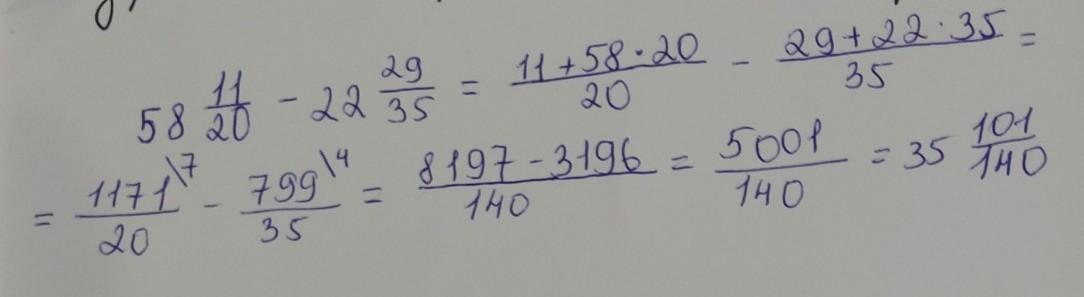 58 11/20 - 22 29/35 = (11+58·20)/20 - (29+22·35)/35 =
= 1171\7/20 - 799\4/35 = (8197-3196)/140 = 5001/140 = 35 101/140